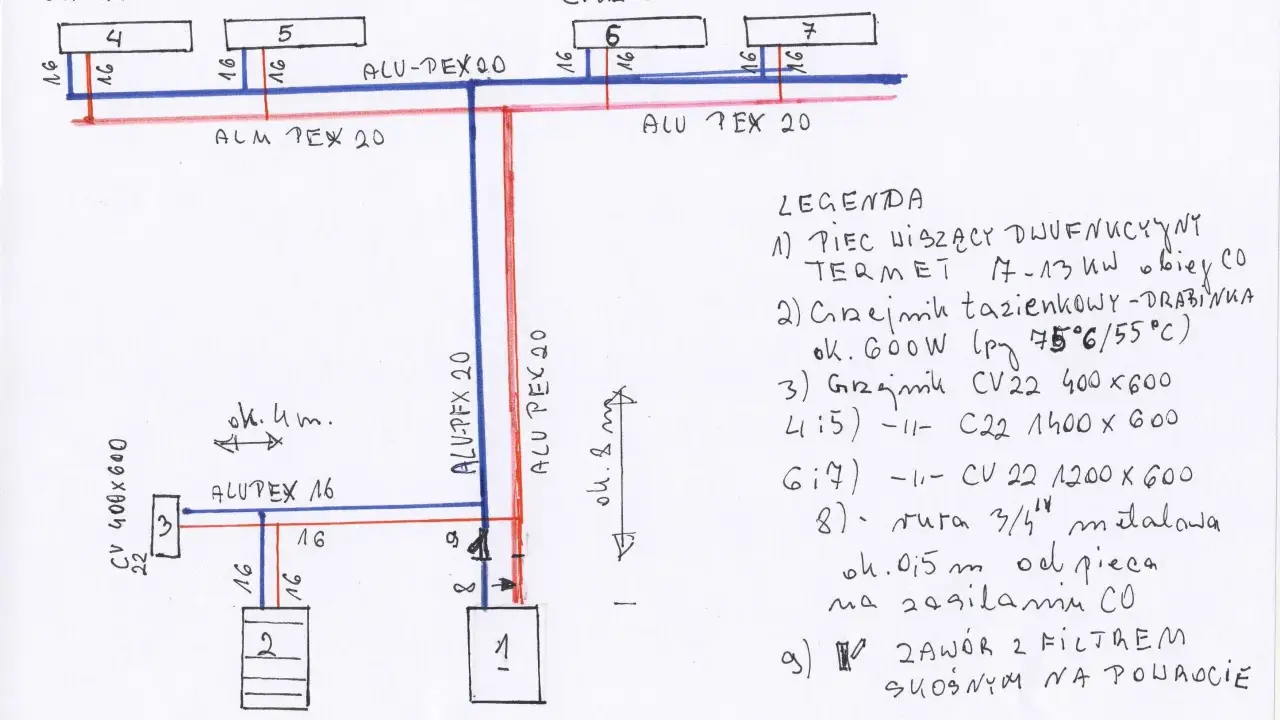 4
5
6
7
16
16
16
16
16
16
16
16
ALU-PEX 20
ALM PEX 20
ALU PEX 20
LEGENDA
1) PIEC WISZĄCY DWUFNKCYJNY
TERMET 7-13 KW obieg CO
2) Grzejnik łazienkowy-DRABINKA
ok. 600W (py 75°C/55°C)
3) Grzejnik CV22 400x600
4i5) -11- C22 1400 x 600
6i7) -11- CV 22 1200 x 600
8). rura 3/4" metalowa
ok. 0,5 m od pieca
na zasilaniu CO
9) ZAWÓR Z FILTREM
SKOŚNYM NA POWROCIE
ALU-PEX 20
ALU PEX 20
ok. 8 m
ok. 4 m.
ALUPEX 16
CV 400x600
22
3
16
9
16
16
8
2
1